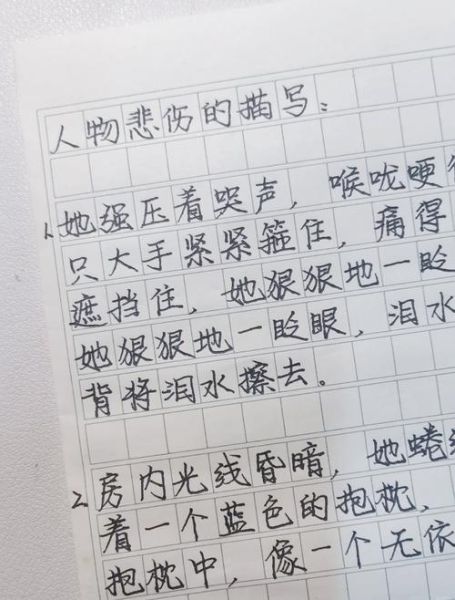 人物悲伤的描写：
1、她强压着哭声，喉咙哽
只大手紧紧箍住，痛得
遮挡住，她狠狠地一眨
她狠狠地一眨眼，泪水
背将泪水擦去。
2、房内光线昏暗，她蜷
着一个蓝色的抱枕，
抱枕中，像一个无依